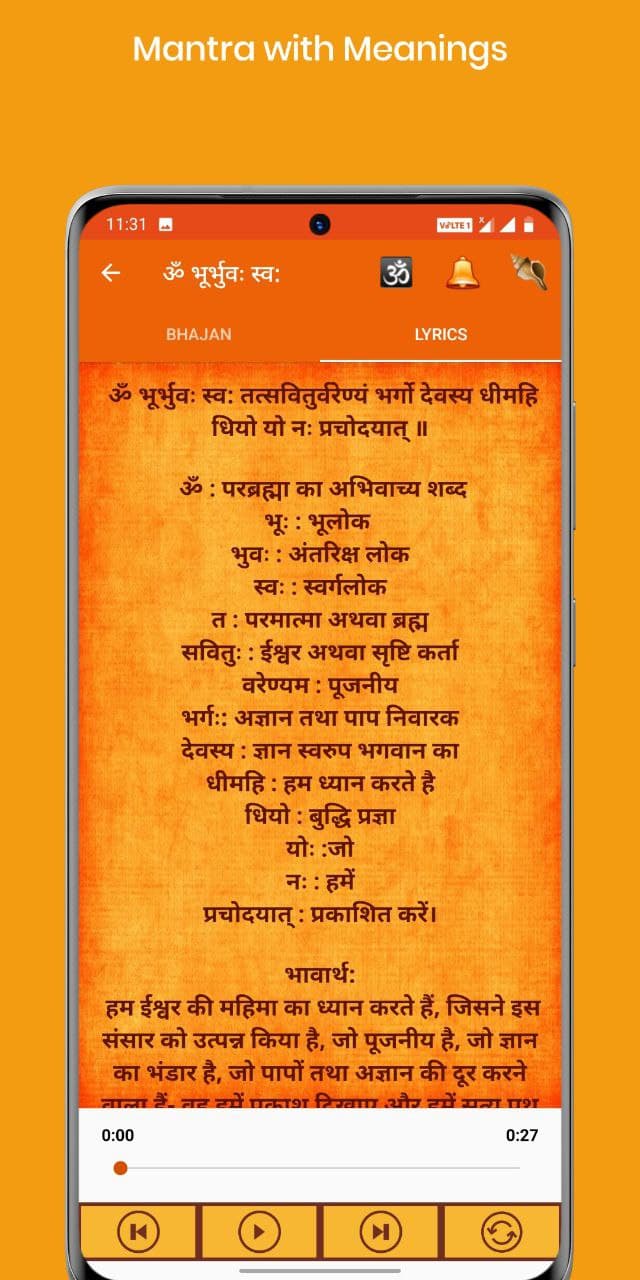 Mantra with Meanings
11:31
VoLTE 1
ॐ भूर्भुवः स्व:
ॐ
BHAJAN
LYRICS
ॐ भूर्भुवः स्व: तत्सवितुर्वरेण्यं भर्गो देवस्य धीमहि
धियो यो नः प्रचोदयात् ॥
ॐ : परब्रह्मा का अभिवाच्य शब्द
भूः : भूलोक
भुवः : अंतरिक्ष लोक
स्वः : स्वर्गलोक
त : परमात्मा अथवा ब्रह्म
सवितुः : ईश्वर अथवा सृष्टि कर्ता
वरेण्यम : पूजनीय
भर्गः: अज्ञान तथा पाप निवारक
देवस्य : ज्ञान स्वरुप भगवान का
धीमहि : हम ध्यान करते है
धियो : बुद्धि प्रज्ञा
योः :जो
नः : हमें
प्रचोदयात् : प्रकाशित करें।
भावार्थ:
हम ईश्वर की महिमा का ध्यान करते हैं, जिसने इस
संसार को उत्पन्न किया है, जो पूजनीय है, जो ज्ञान
का भंडार है, जो पापों तथा अज्ञान की दूर करने
वाला हैं- वह हमें प्रकाश दिखाए और हमें सत्य पथ
0:00
0:27